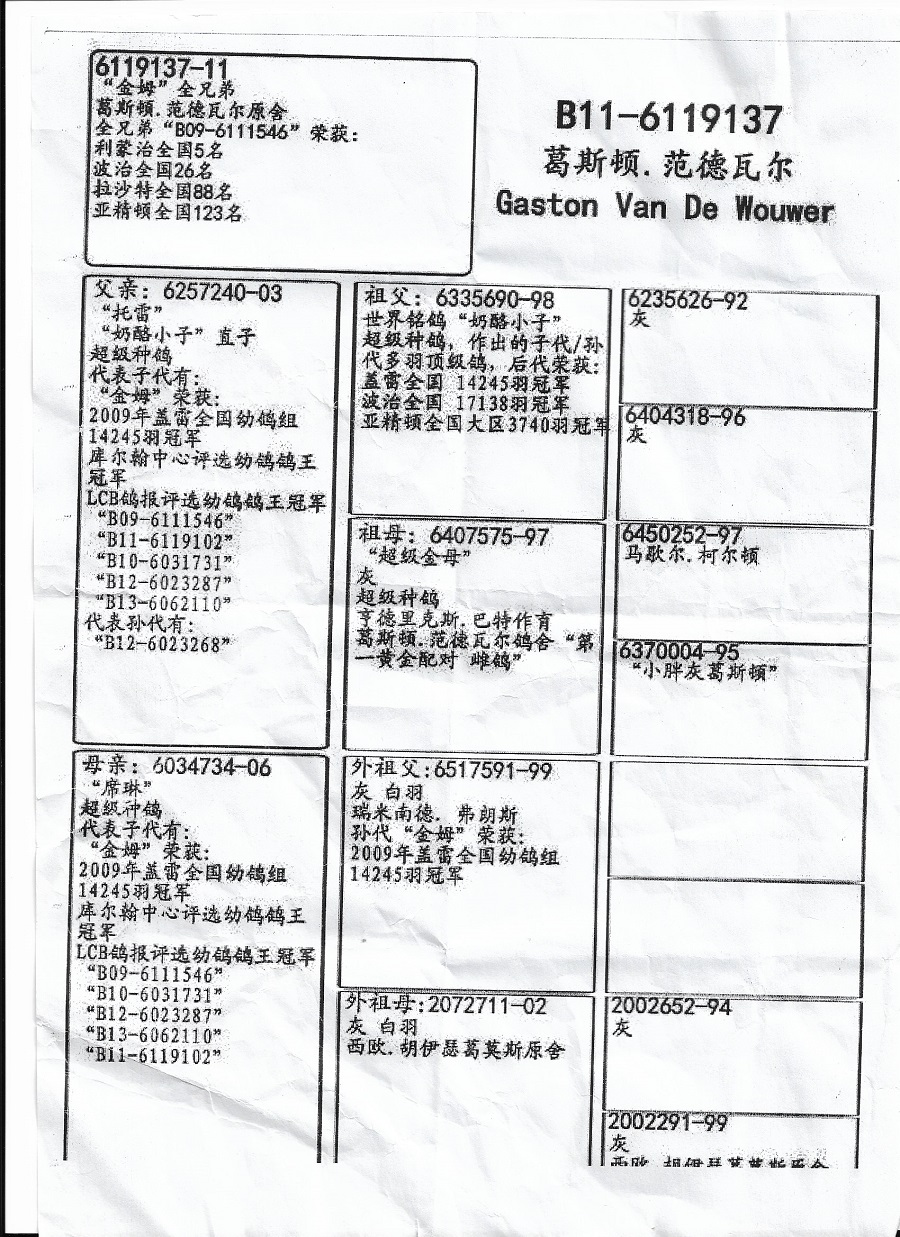 6119137-11
“金姆”全兄弟
葛斯顿.范德瓦尔原舍
全兄弟“B09-6111546”荣获：
利蒙治全国5名
波治全国26名
拉沙特全国88名
亚精顿全国123名
B11-6119137
葛斯顿.范德瓦尔
Gaston Van De Wouwer
父亲：6257240-03
“托雷”
“奶酪小子”直子
超级种鸽
代表子代有：
“金姆”荣获：
2009年盖雷全国幼鸽组
14245羽冠军
库尔翰中心评选幼鸽鸽王
冠军
LCB鸽报评选幼鸽鸽王冠军
“B09-6111546”
“B11-6119102”
“B10-6031731”
“B12-6023287”
“B13-6062110”
代表孙代有：
“B12-6023268”
祖父：6335690-98
世界铭鸽“奶酪小子”
超级种鸽，作出的子代/孙
代多羽顶级鸽，后代荣获：
盖雷全国 14245羽冠军
波治全国 17138羽冠军
亚精顿全国大区3740羽冠军
祖母：6407575-97
“超级金母”
灰
超级种鸽
亨德里克斯.巴特作育
葛斯顿.范德瓦尔鸽舍“第
一黄金配对 雌鸽”
6235626-92
灰
6404318-96
灰
6450252-97
马歇尔.柯尔顿
6370004-95
“小胖灰葛斯顿”
母亲：6034734-06
“席琳”
超级种鸽
代表子代有：
“金姆”荣获：
2009年盖雷全国幼鸽组
14245羽冠军
库尔翰中心评选幼鸽鸽王
冠军
LCB鸽报评选幼鸽鸽王冠军
“B09-6111546”
“B10-6031731”
“B12-6023287”
“B13-6062110”
“B11-6119102”
外祖父:6517591-99
灰 白羽
瑞米南德. 弗朗斯
孙代“金姆”荣获：
2009年盖雷全国幼鸽组
14245羽冠军
外祖母:2072711-02
灰 白羽
西欧.胡伊瑟葛莫斯原舍
2002652-94
灰
2002291-99
灰
西欧.胡伊瑟葛莫斯原舍